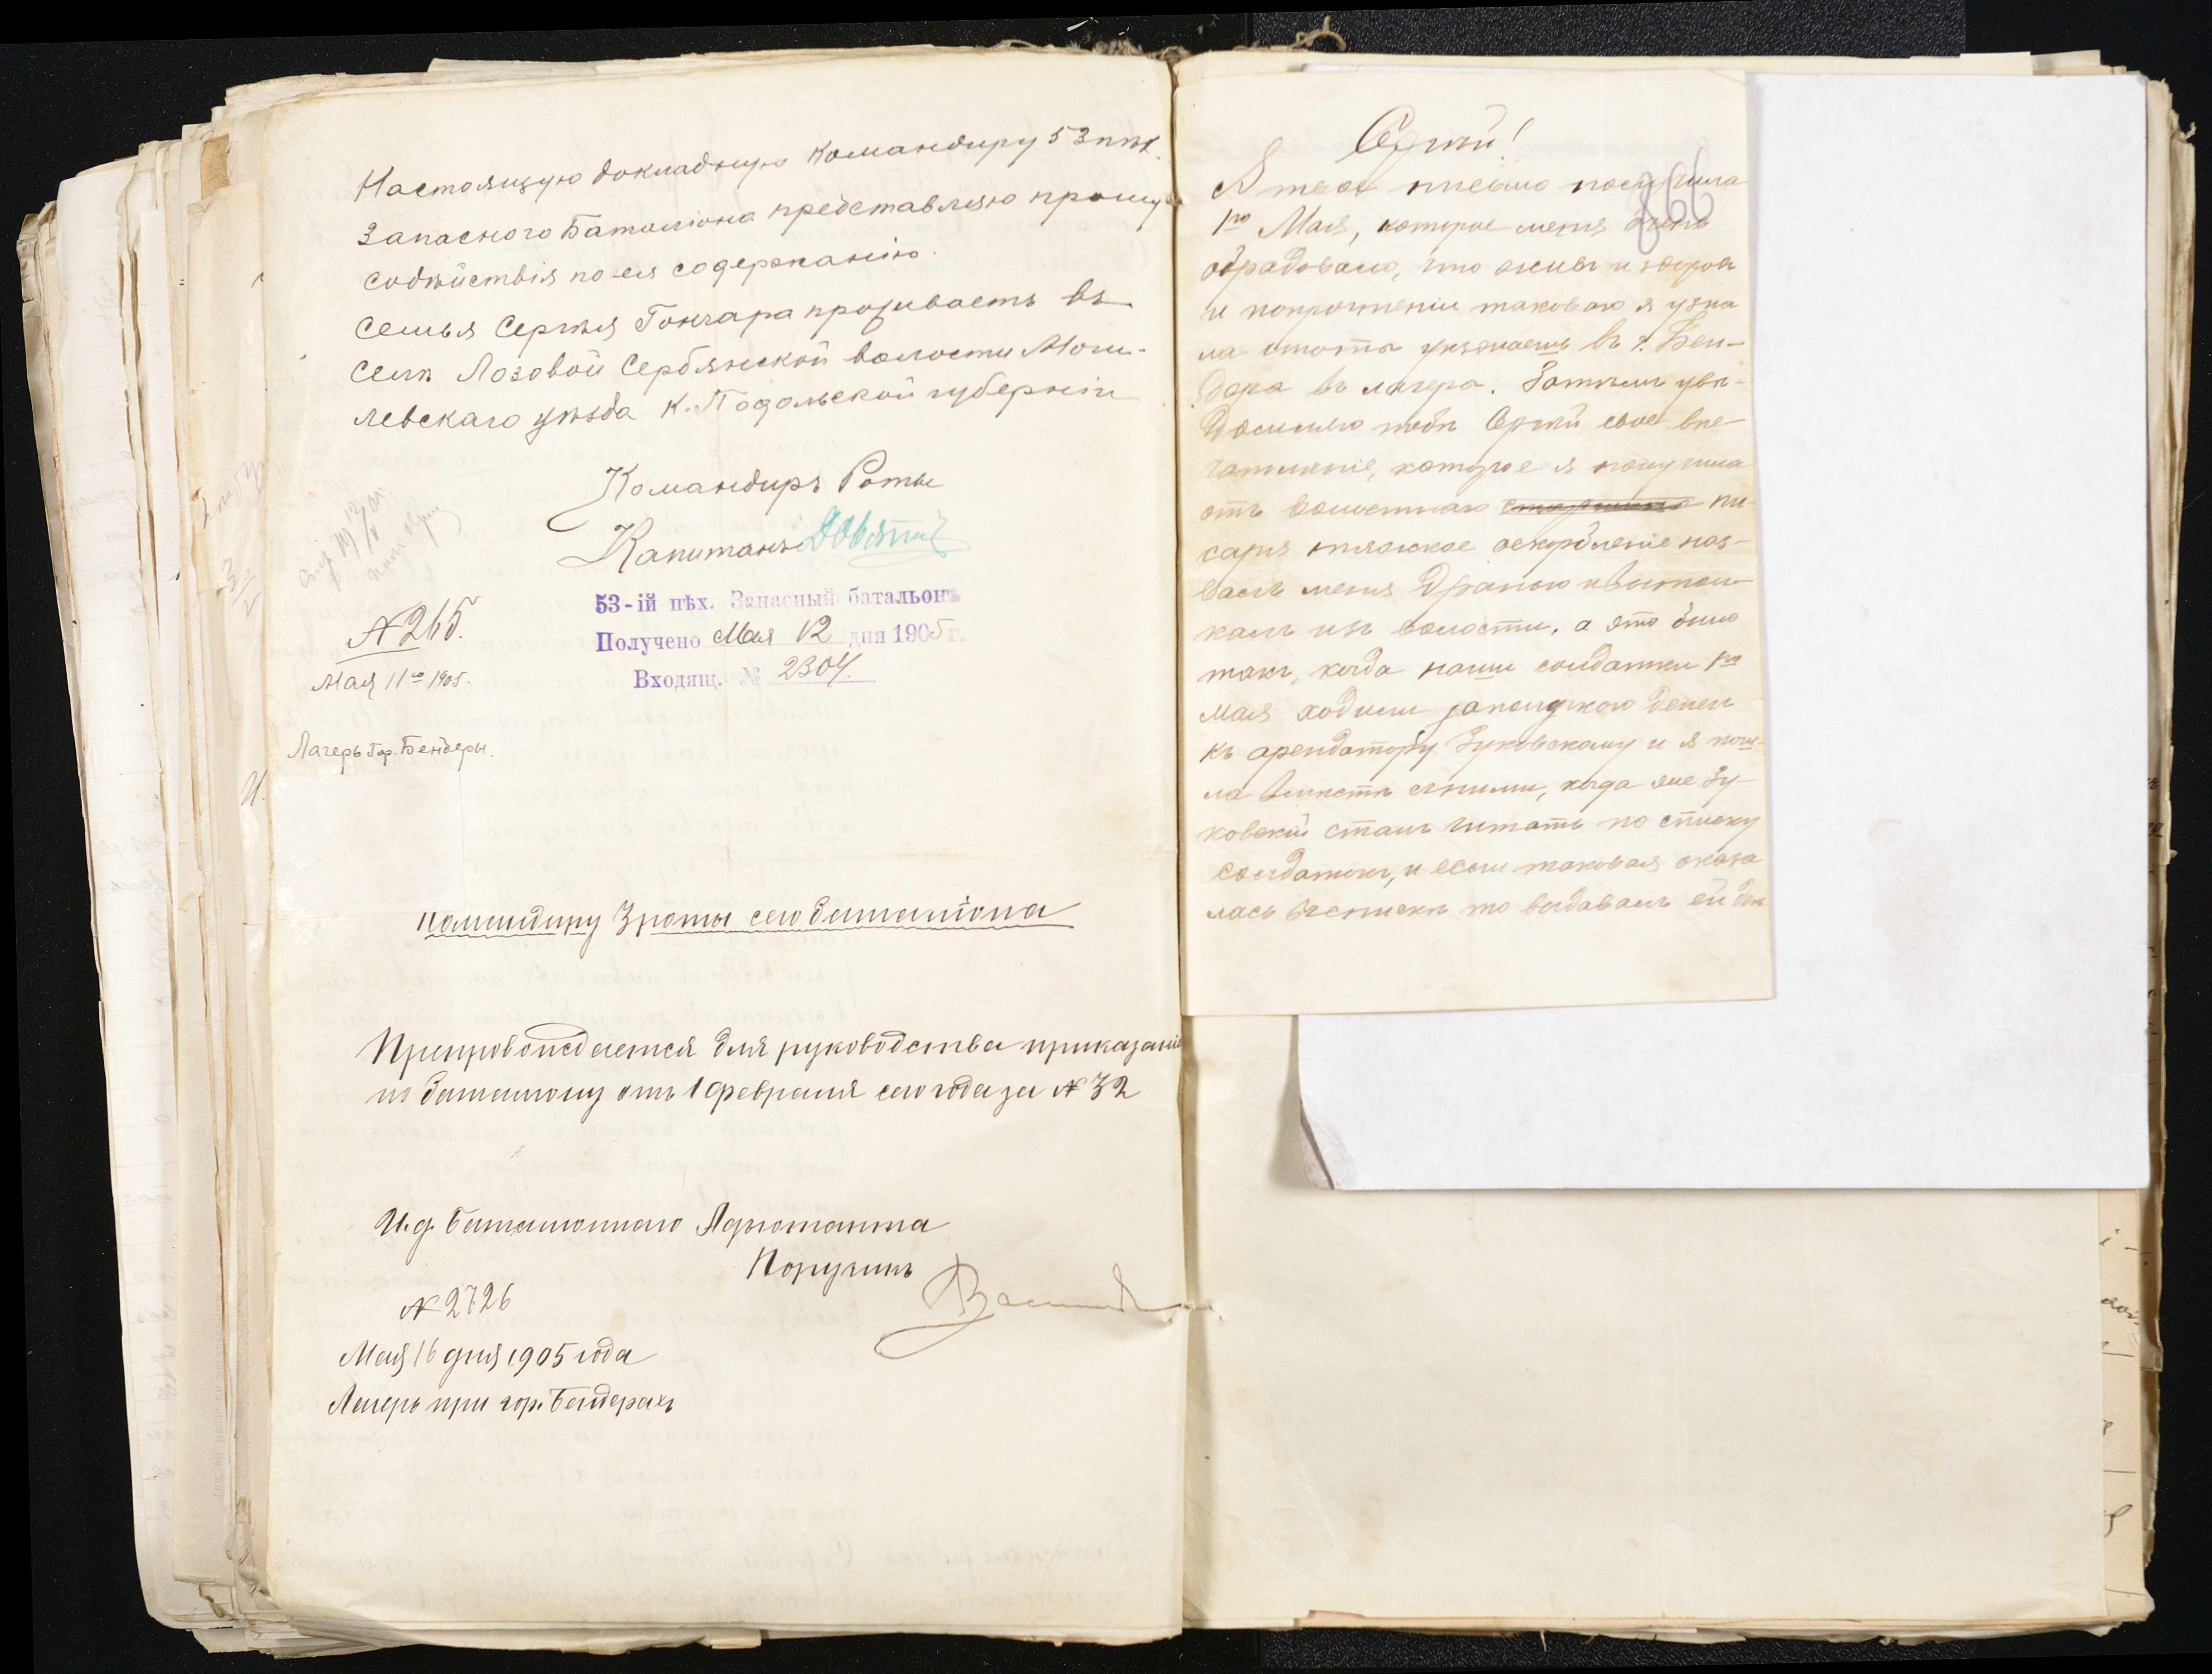 Настоящую докладную Командиру 53 пѣх.
Запасного Баталіона представляю прошу
содѣйствія по ея содержанію.
Семья Сергѣя Гончара проживаетъ въ
Селѣ Лозовой Сербянской волости Моги-
левскаго уѣзда К. Подольской губерніи
Командиръ Роты
Капитанъ
53-ій пѣх. Запасный батальонъ
Получено Мая 12 дня 1905 г.
Входящ. № 2304.
№ 265.
Мая 11го 1905.
Лагерь Гор. Бендеры.
Командиру 3 роты сего баталіона
Препровождается для руководства приказаніе
по баталіону отъ 1 февраля сего года за № 32
И. д. Баталіоннаго Адъютанта
Поручикъ
№ 2726
Мая 16 дня 1905 года
Лагерь при гор. Бендерахъ
866
Сергѣй!
Я твое письмо получила
1го Мая, которое меня очень
обрадовало, что живъ и здоровъ
и попрочтеніи таковаго я узна
ла што ты уезжаешь въ г. Бен-
дера въ лагера. Затѣмъ увѣ-
домляю тебѣ Сергѣй свое впе-
чатленіе, которое я получила
отъ волостнаго пи-
саря тяжкое оскорбленіе наз-
валъ меня драною и вытол-
калъ изъ волости, а это было
такъ, когда наши солдатки 1го
мая ходили за получкою денегъ
къ арендатору Зуковскому и я пош-
ла вмѣстѣ сними, когда же Зу-
ковскій сталъ читать по списку
солдатокъ, и если таковая оказа
лась въ спискѣ то выдавалъ ей